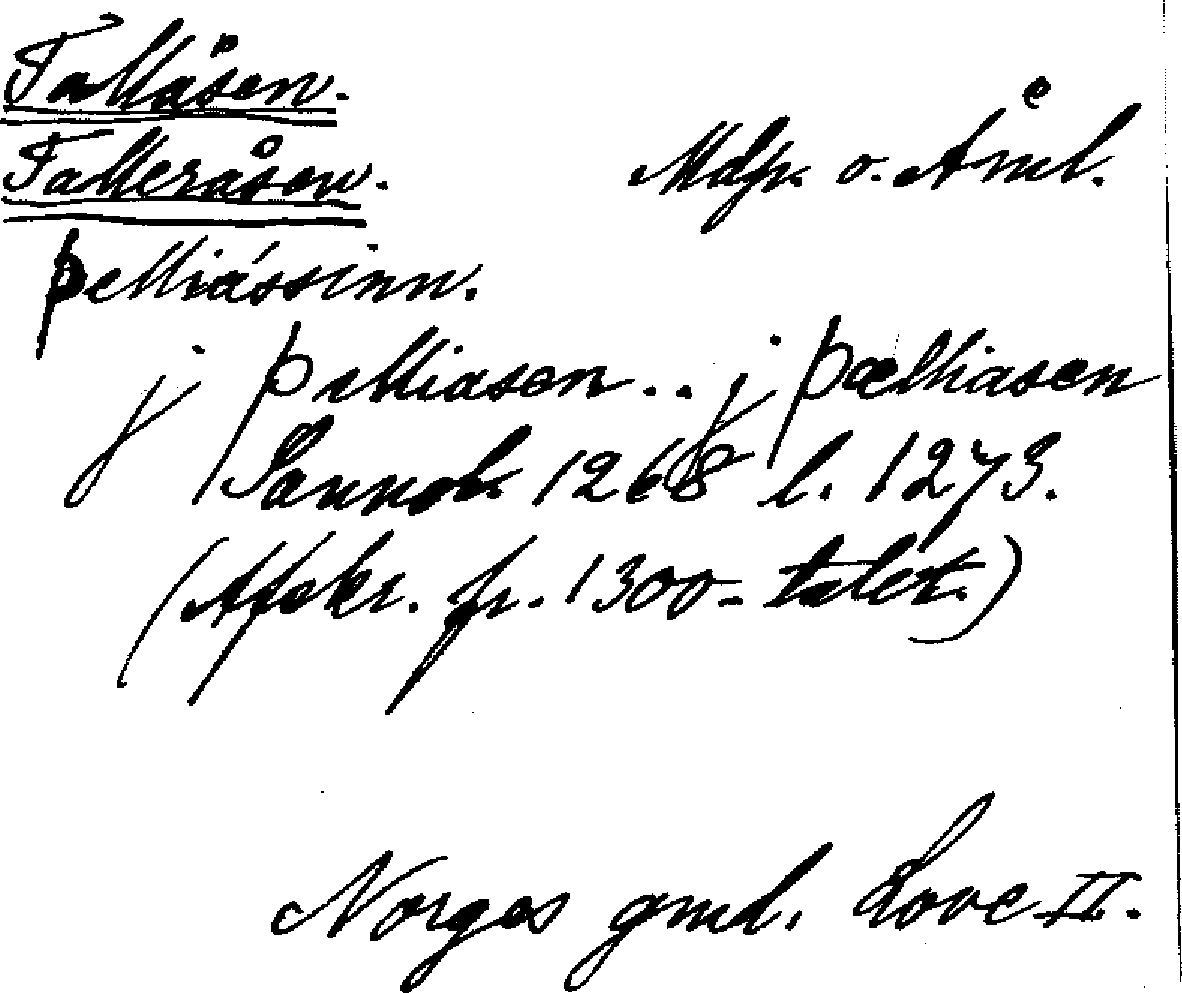 Tallåsen.
Talleråsen. Mdp. o. Åml.
Þelliássinn.
j Þelliasen .. j Þælliasen
Sannok. 1268 l. 1273.
(Afskr. fr. 1300-talet.)
Norges gml. Love II.